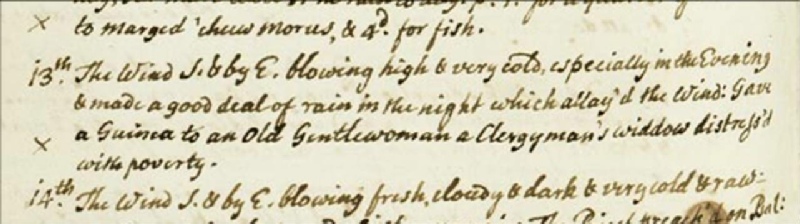 to marged 'cheus morus, & 4d. for fish.
13th. The Wind S. & by E. blowing high & very cold, especially in the Evening
& made a good deal of rain in the night which allay'd the Wind: Gave
a Guinea to an Old Gentlewoman a Clergyman's widdow distress'd
with poverty.
14th. The Wind S. & by E. blowing fresh, cloudy & dark & very cold & raw: